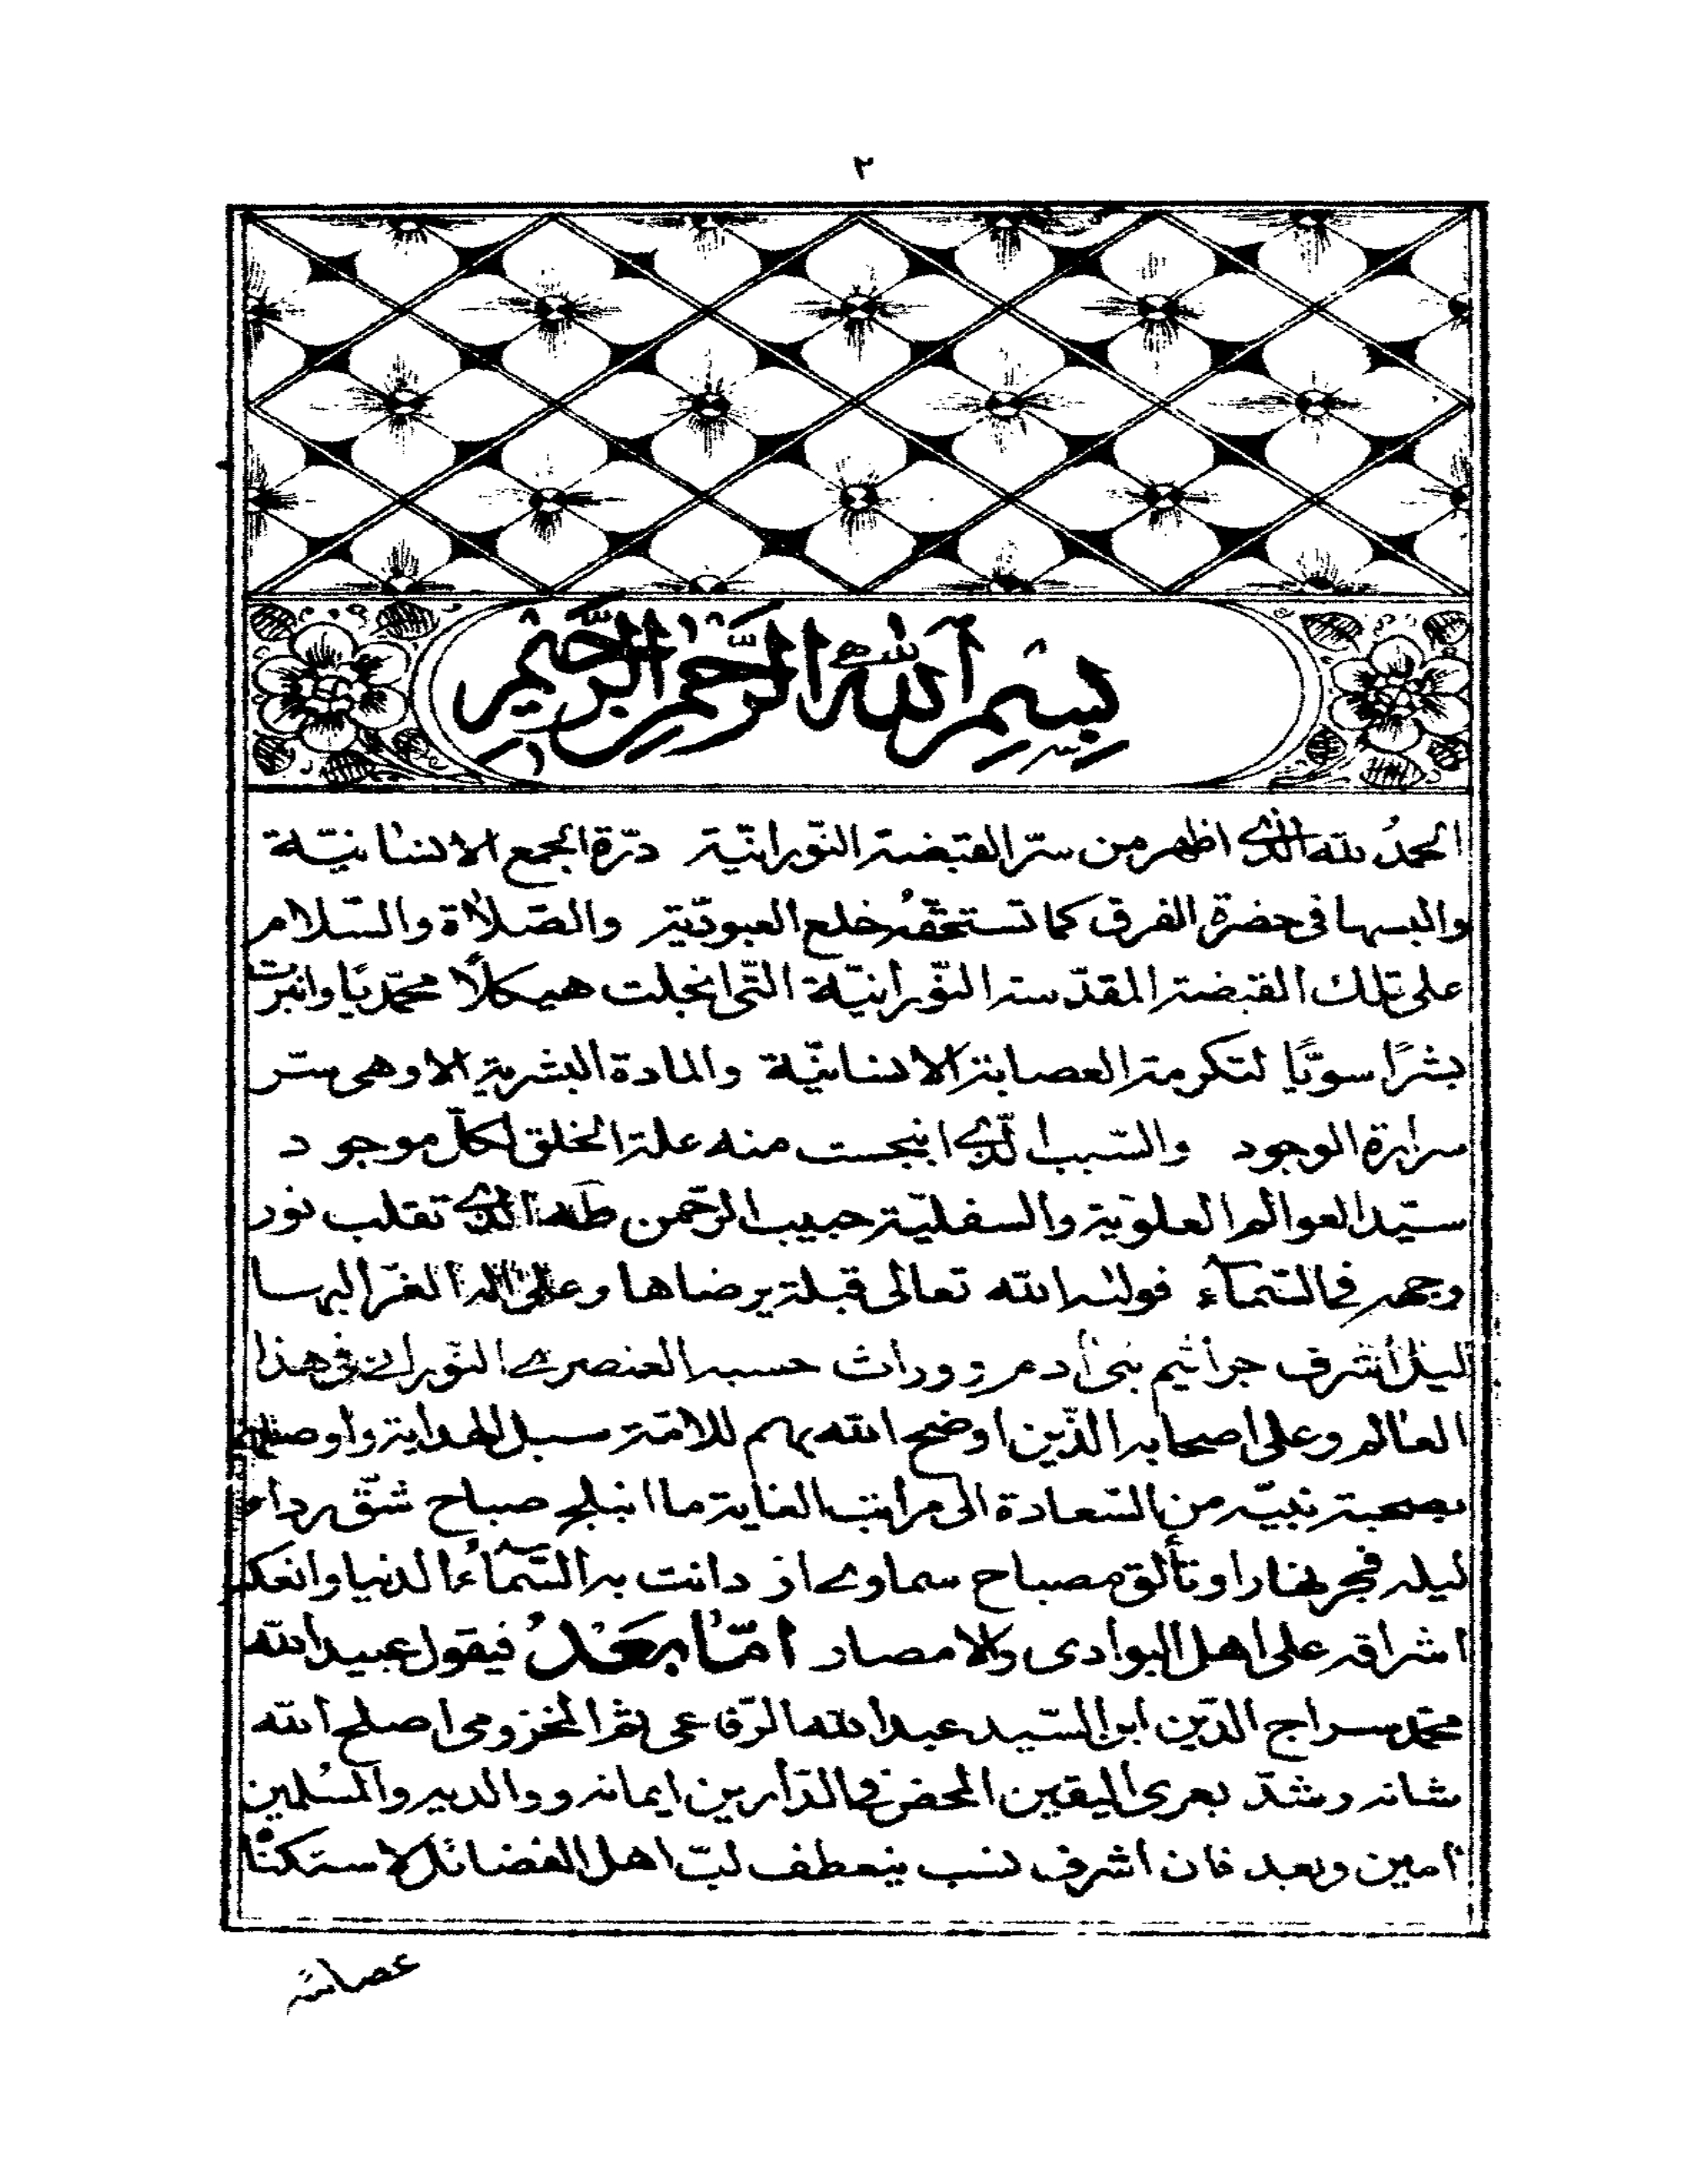 ٢
بِسْمِ اللهِ الرَّحْمٰنِ الرَّحِيْمِ
الحمدُ لله الّذى اظهر من سرّ القبضة النّورانيّة درّة الجمع الانسانيّة
والبسها فى حضرة الفرق كما تستحقّهُ خلع العبوديّة والصّلاة والسّلام
على تلك القبضة المقدّسة النّورانيّة الّتى انجلت هيكلًا محمّديًا وانبرت
بشرًا سويًّا لتكرمة العصابة الانسانيّة والمادة البشرية الا وهى سرّ
سرارة الوجود والسّبب الّذى انبجست منه علة الخلق لكلّ موجود
سيّد العوالم العلويّة والسفليّة حبيب الرّحمن طه الّذى تقلب نور
وجهه فى السّمآء فولّاه الله تعالى قبلة يرضاها وعلى آله الغرّ البها
ليل اشرف جراثيم بنى ادم ووراث حسبه العنصرى النّورانى فى هذا
العالم وعلى اصحابه الذّين اوضح الله بهم للامّة سبل الهداية واوصلهم
بصحبة نبيّه من السّعادة الى مراتب الغاية ما انبلج صباح شقّ رداء
ليله فجر نهار او تألق مصباح سماوى ازدانت به السّمآء الدنيا وانعكس
اشراقه على اهل البوادى والامصار امّا بعَدُ فيقول عبيد الله
محمّد سراج الدّين ابن السّيد عبد الله الرّفاعى ثم المخزومى اصلح الله
شانه وشدّ بعرى اليقين المحض فى الدّارين ايمانه ووالديه والمسلمين
امين وبعد فان اشرف نسب ينعطف لبّ اهل الفضائل لاستكناه
عصابته